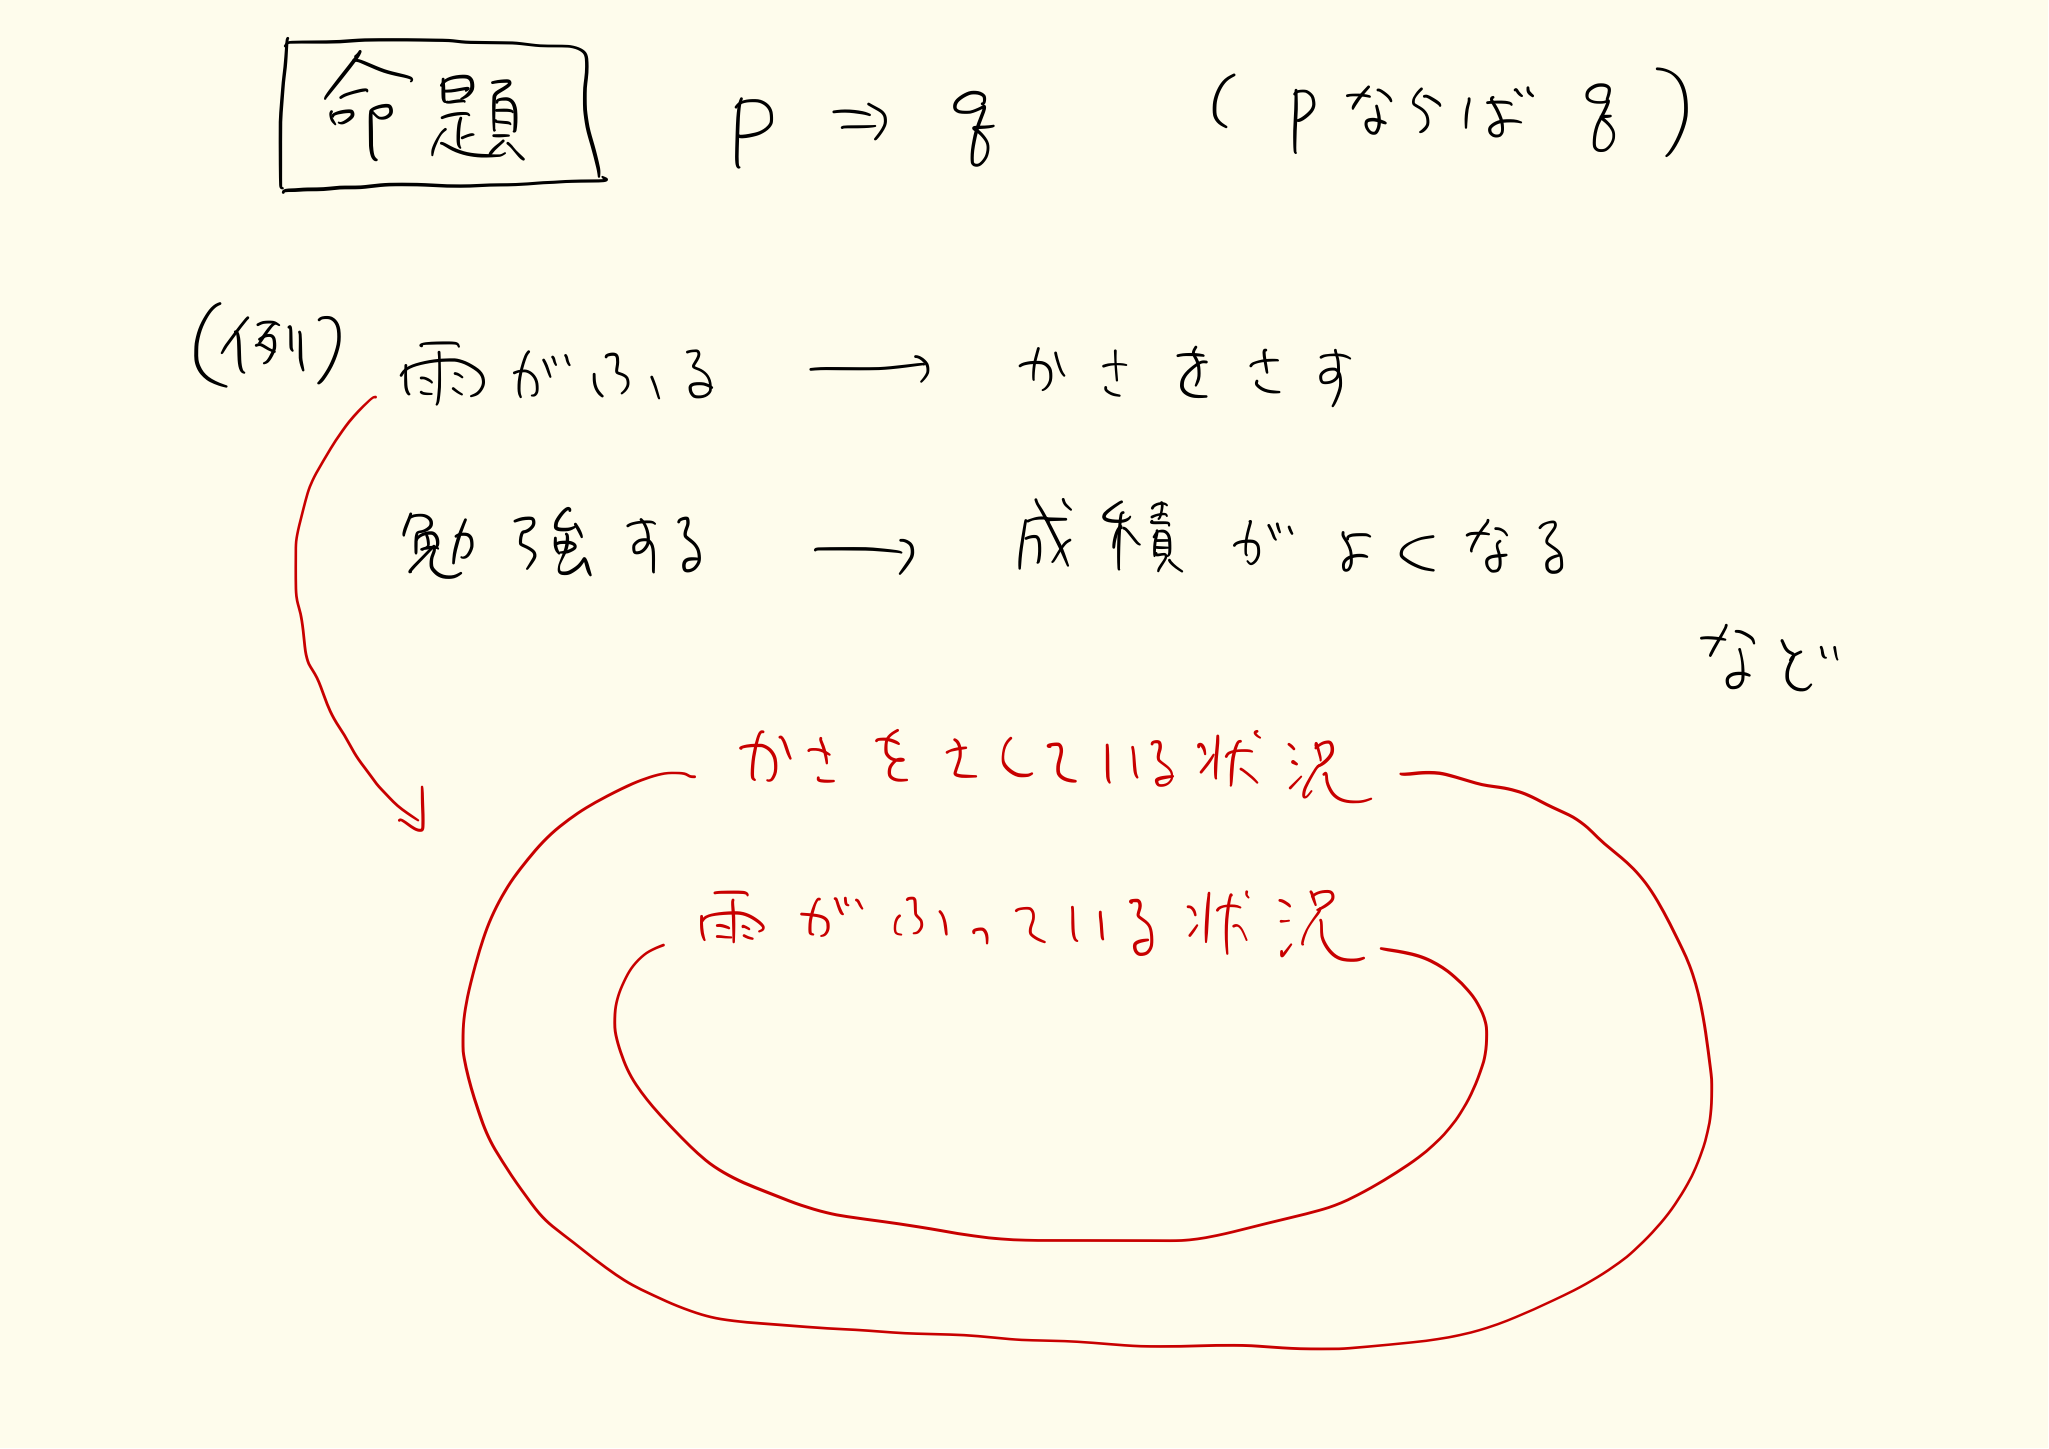 命題 p ⇒ q (pならばq)
(例) 雨がふる → かさをさす
勉強する → 成績がよくなる
など
かさをさしている状況
雨がふっている状況